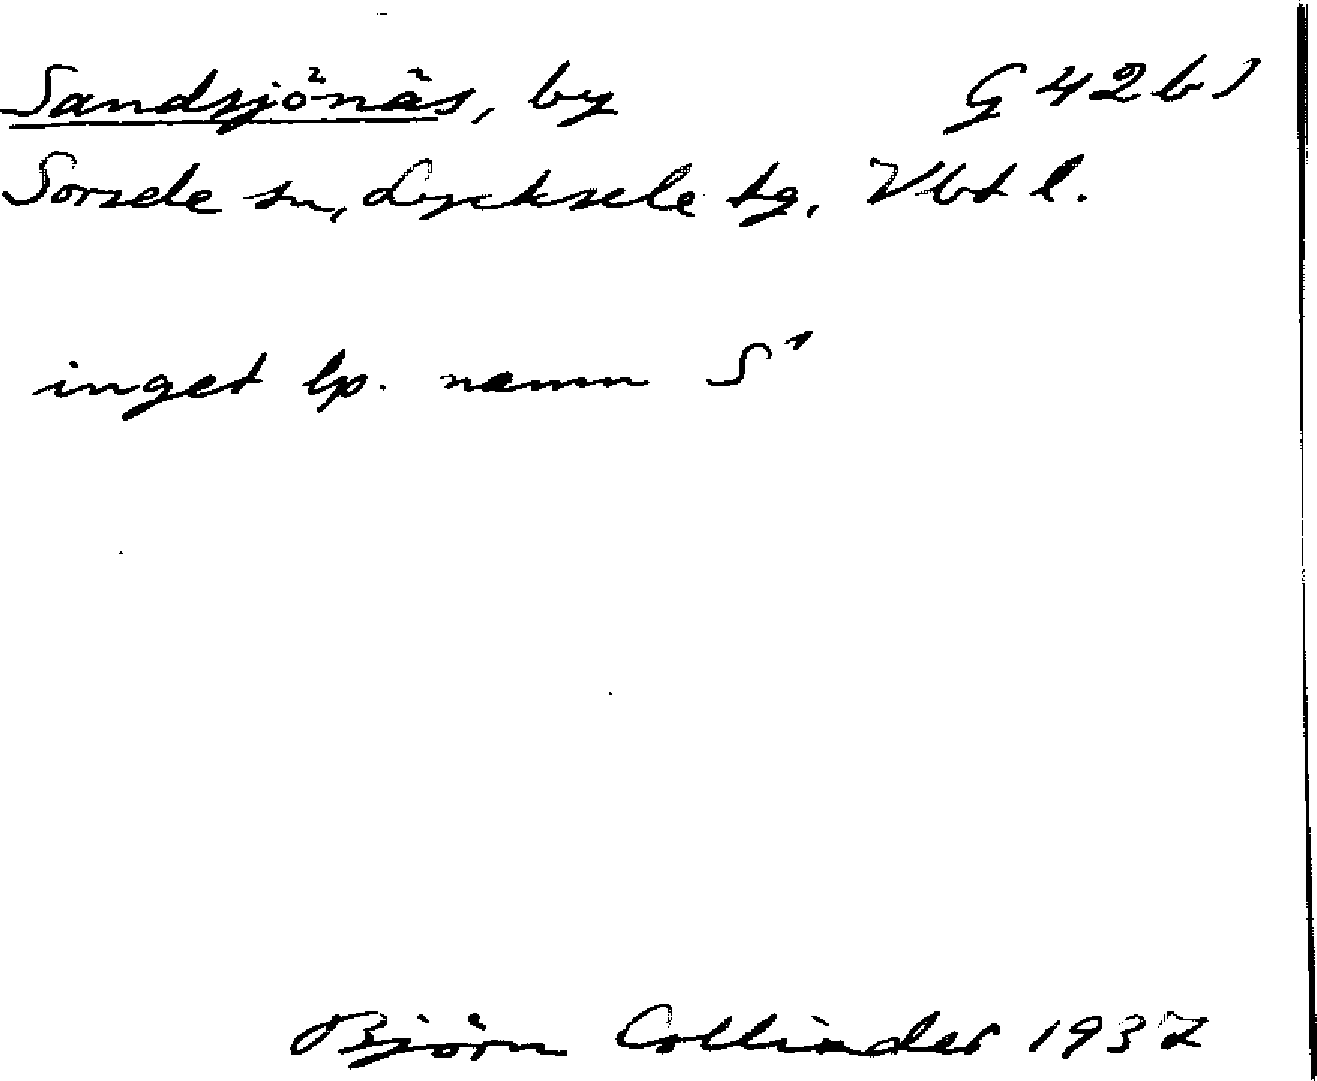 Sandsjönäs, by G 42 b 1
Sorsele sn, Lycksele tg, Vbt l.
inget lp. namn S¹
Björn Collinder 1937